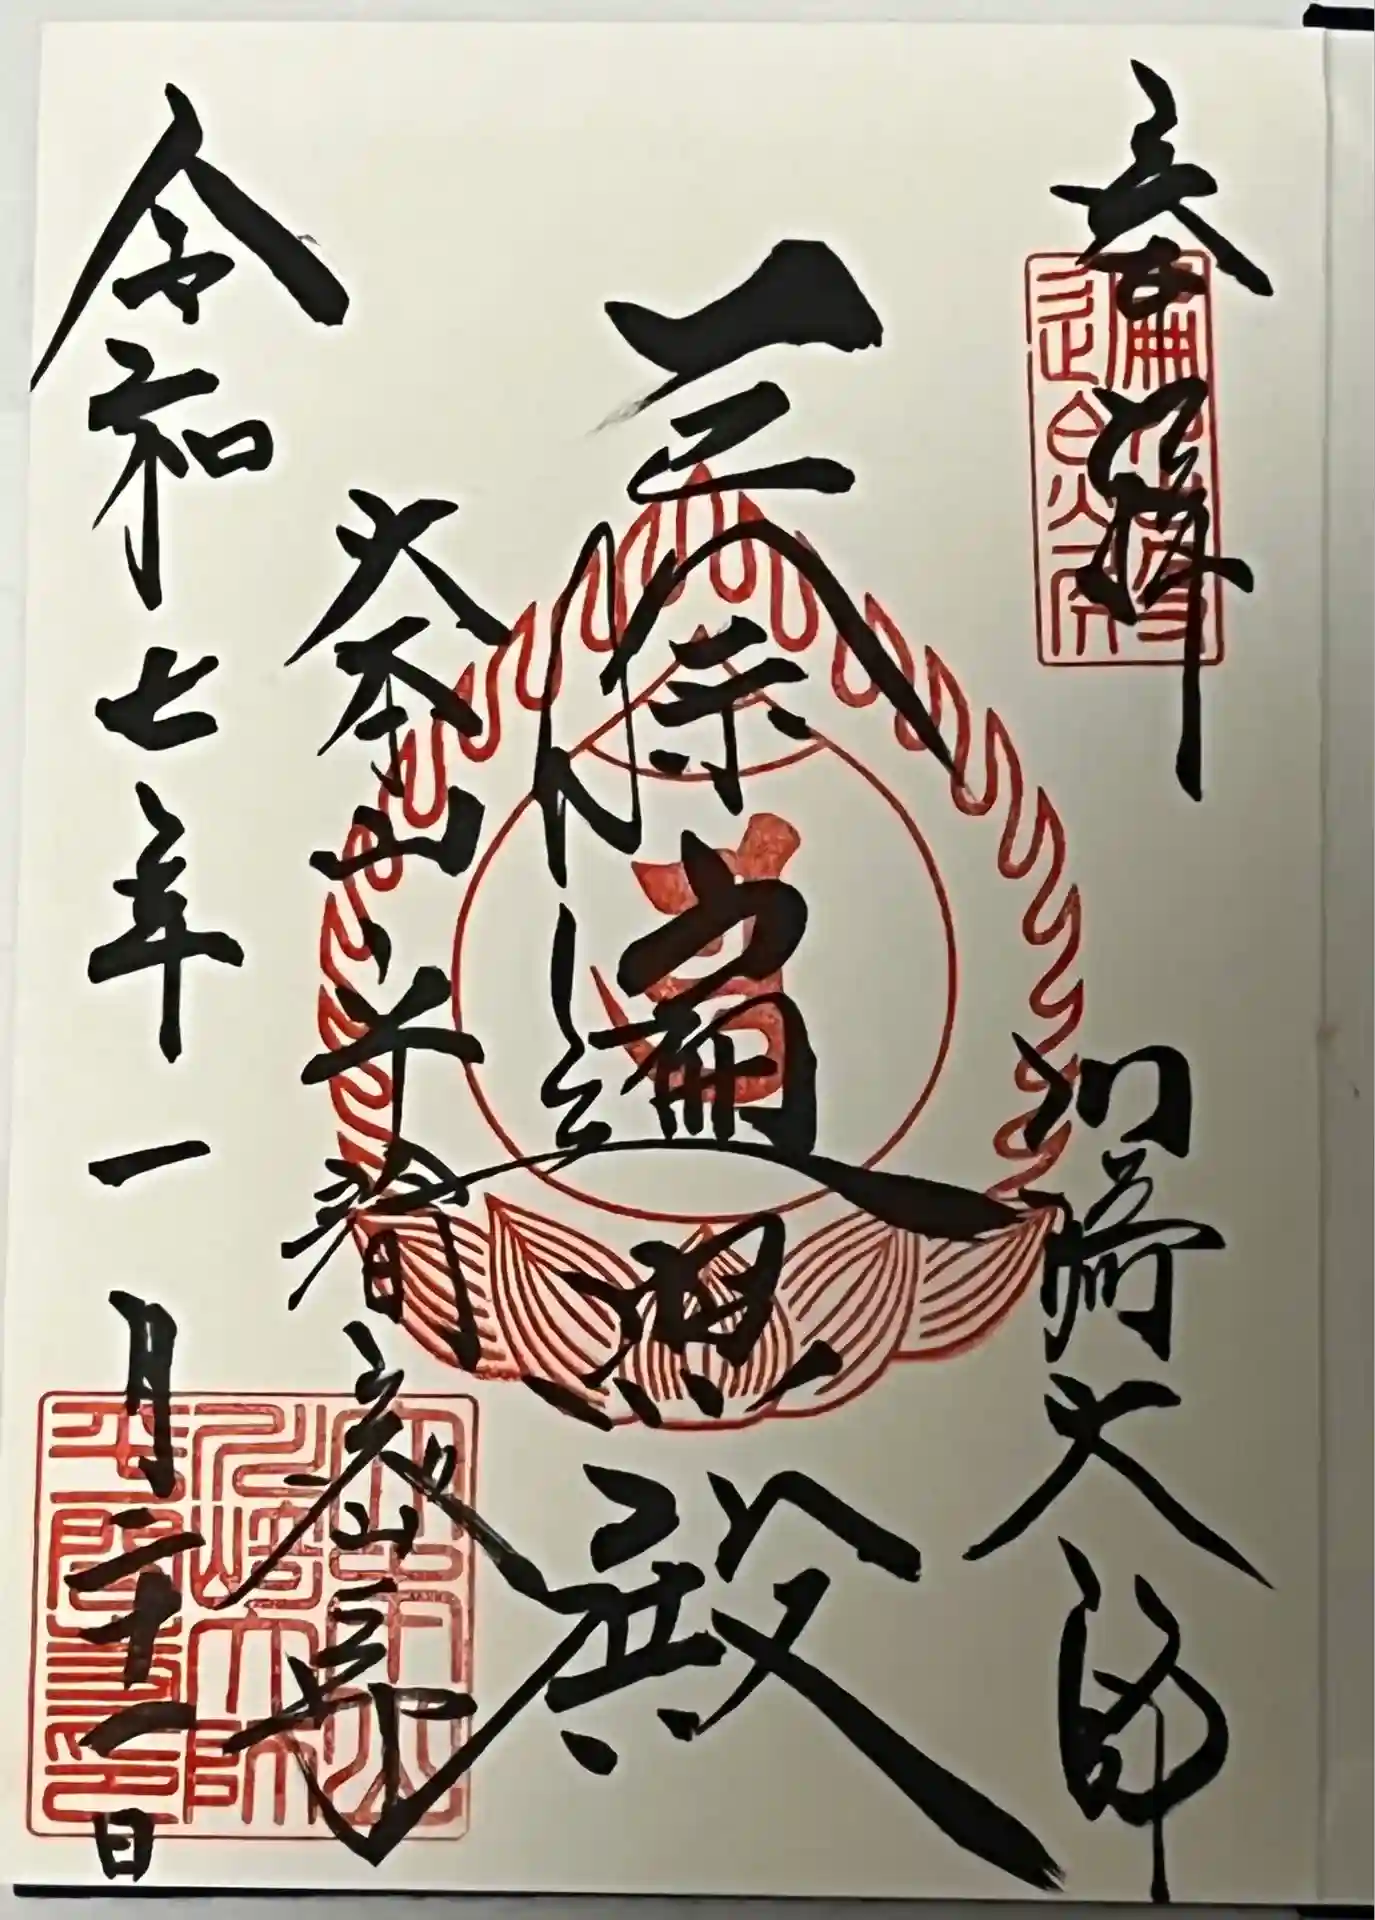 奉拝　川崎大師
厄除遍照殿
大本山平間寺
令和七年一月二十一日